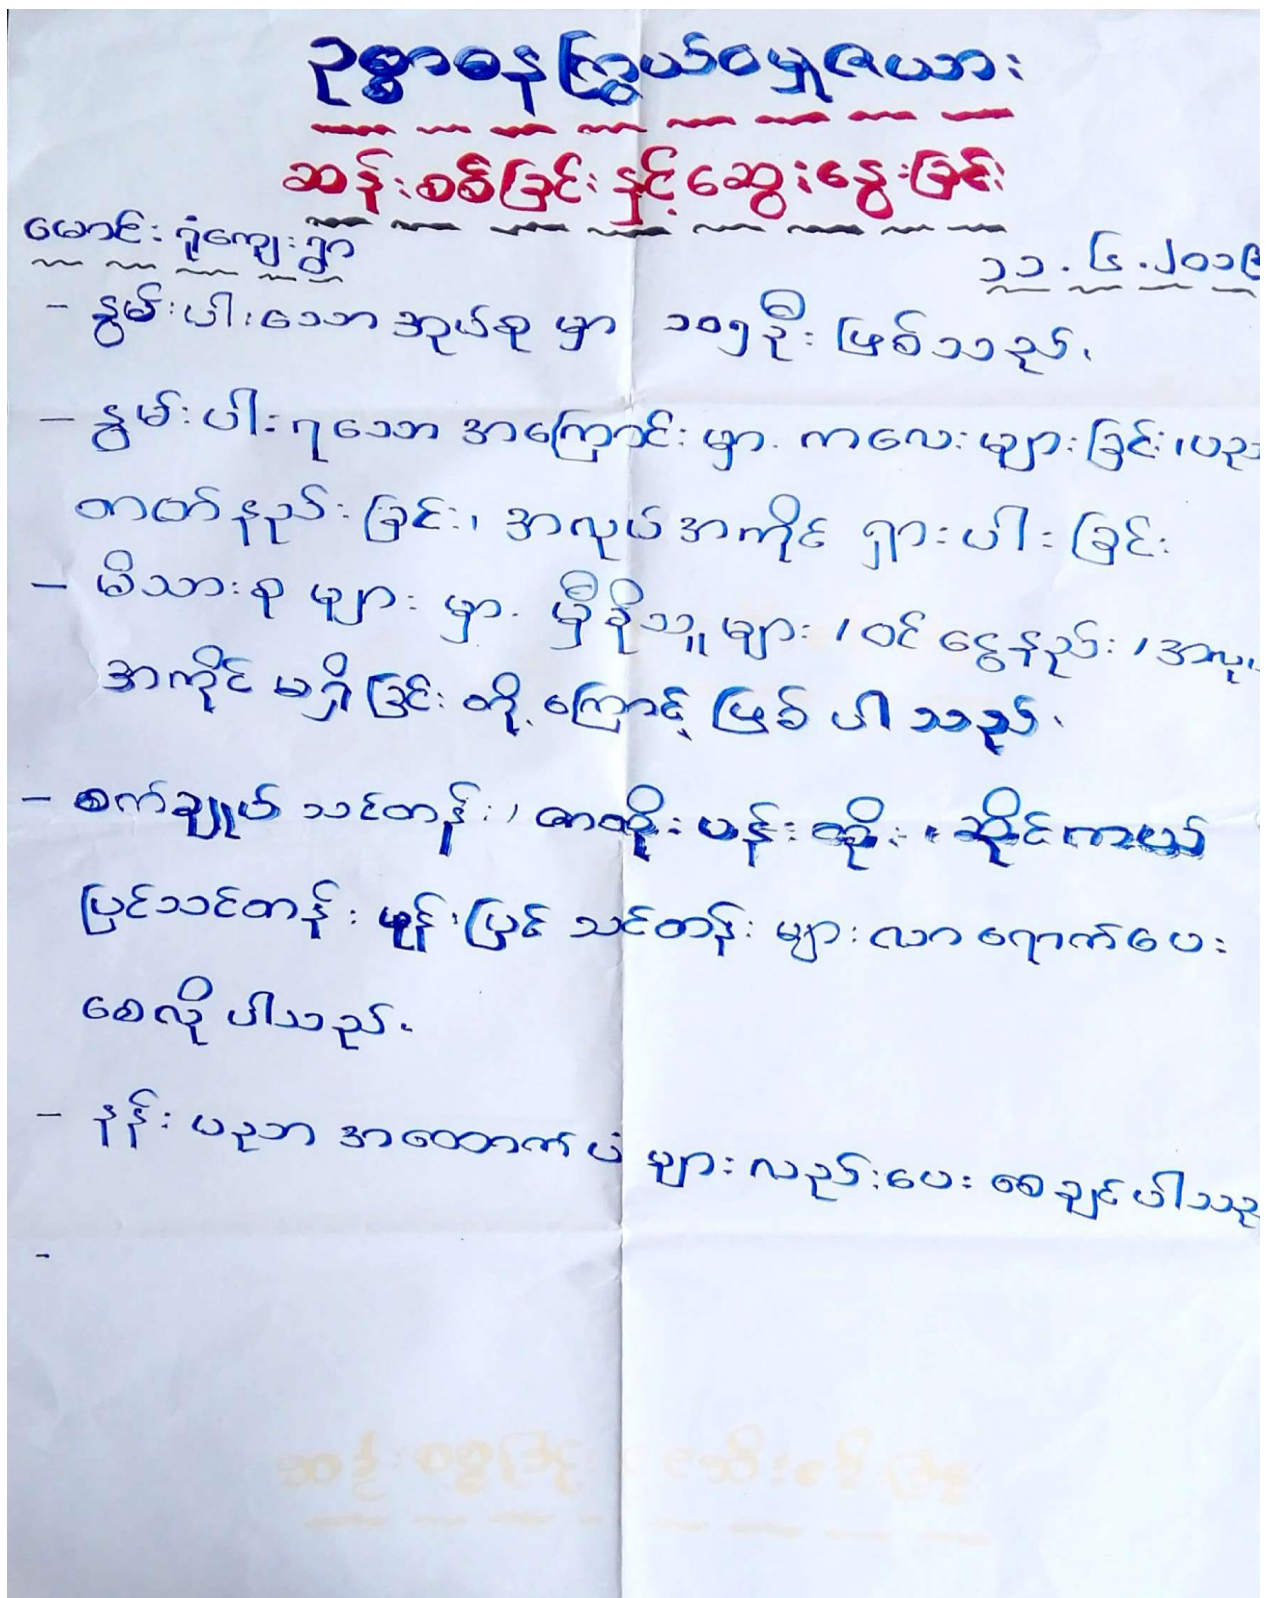 ဥစ္စာဓနကြွယ်ဝမှုဇယား
ဆန်းစစ်ခြင်းနှင့်ဆွေးနွေးခြင်း
မောင်းရုံကျေးရွာ
၁၁.၆.၂၀၁၉
- နွမ်းပါးသောအုပ်စု မှာ ၁၀၅ဦး ဖြစ်သည်.
- နွမ်းပါးရသော အကြောင်းမှာ. ကလေးများခြင်း၊ပည
တတ်နည်းခြင်း၊ အလုပ်အကိုင် ရှားပါးခြင်း
- မိသားစုများမှာ. မှီခိုသူများ၊ ဝင်ငွေနည်း၊အလု
အကိုင်မရှိခြင်းတို့ကြောင့် ဖြစ်ပါသည်.
- စက်ချုပ်သင်တန်း၊ ဇာထိုးပန်းထိုး၊ ဆိုင်ကယ်
ပြင်သင်တန်း ဖုန်းပြင် သင်တန်းများလာရောက်ပေး
စေလိုပါသည်.
- နန်းပညာ အထောက်ပံ့များလည်းပေးစေချင်ပါသည
-